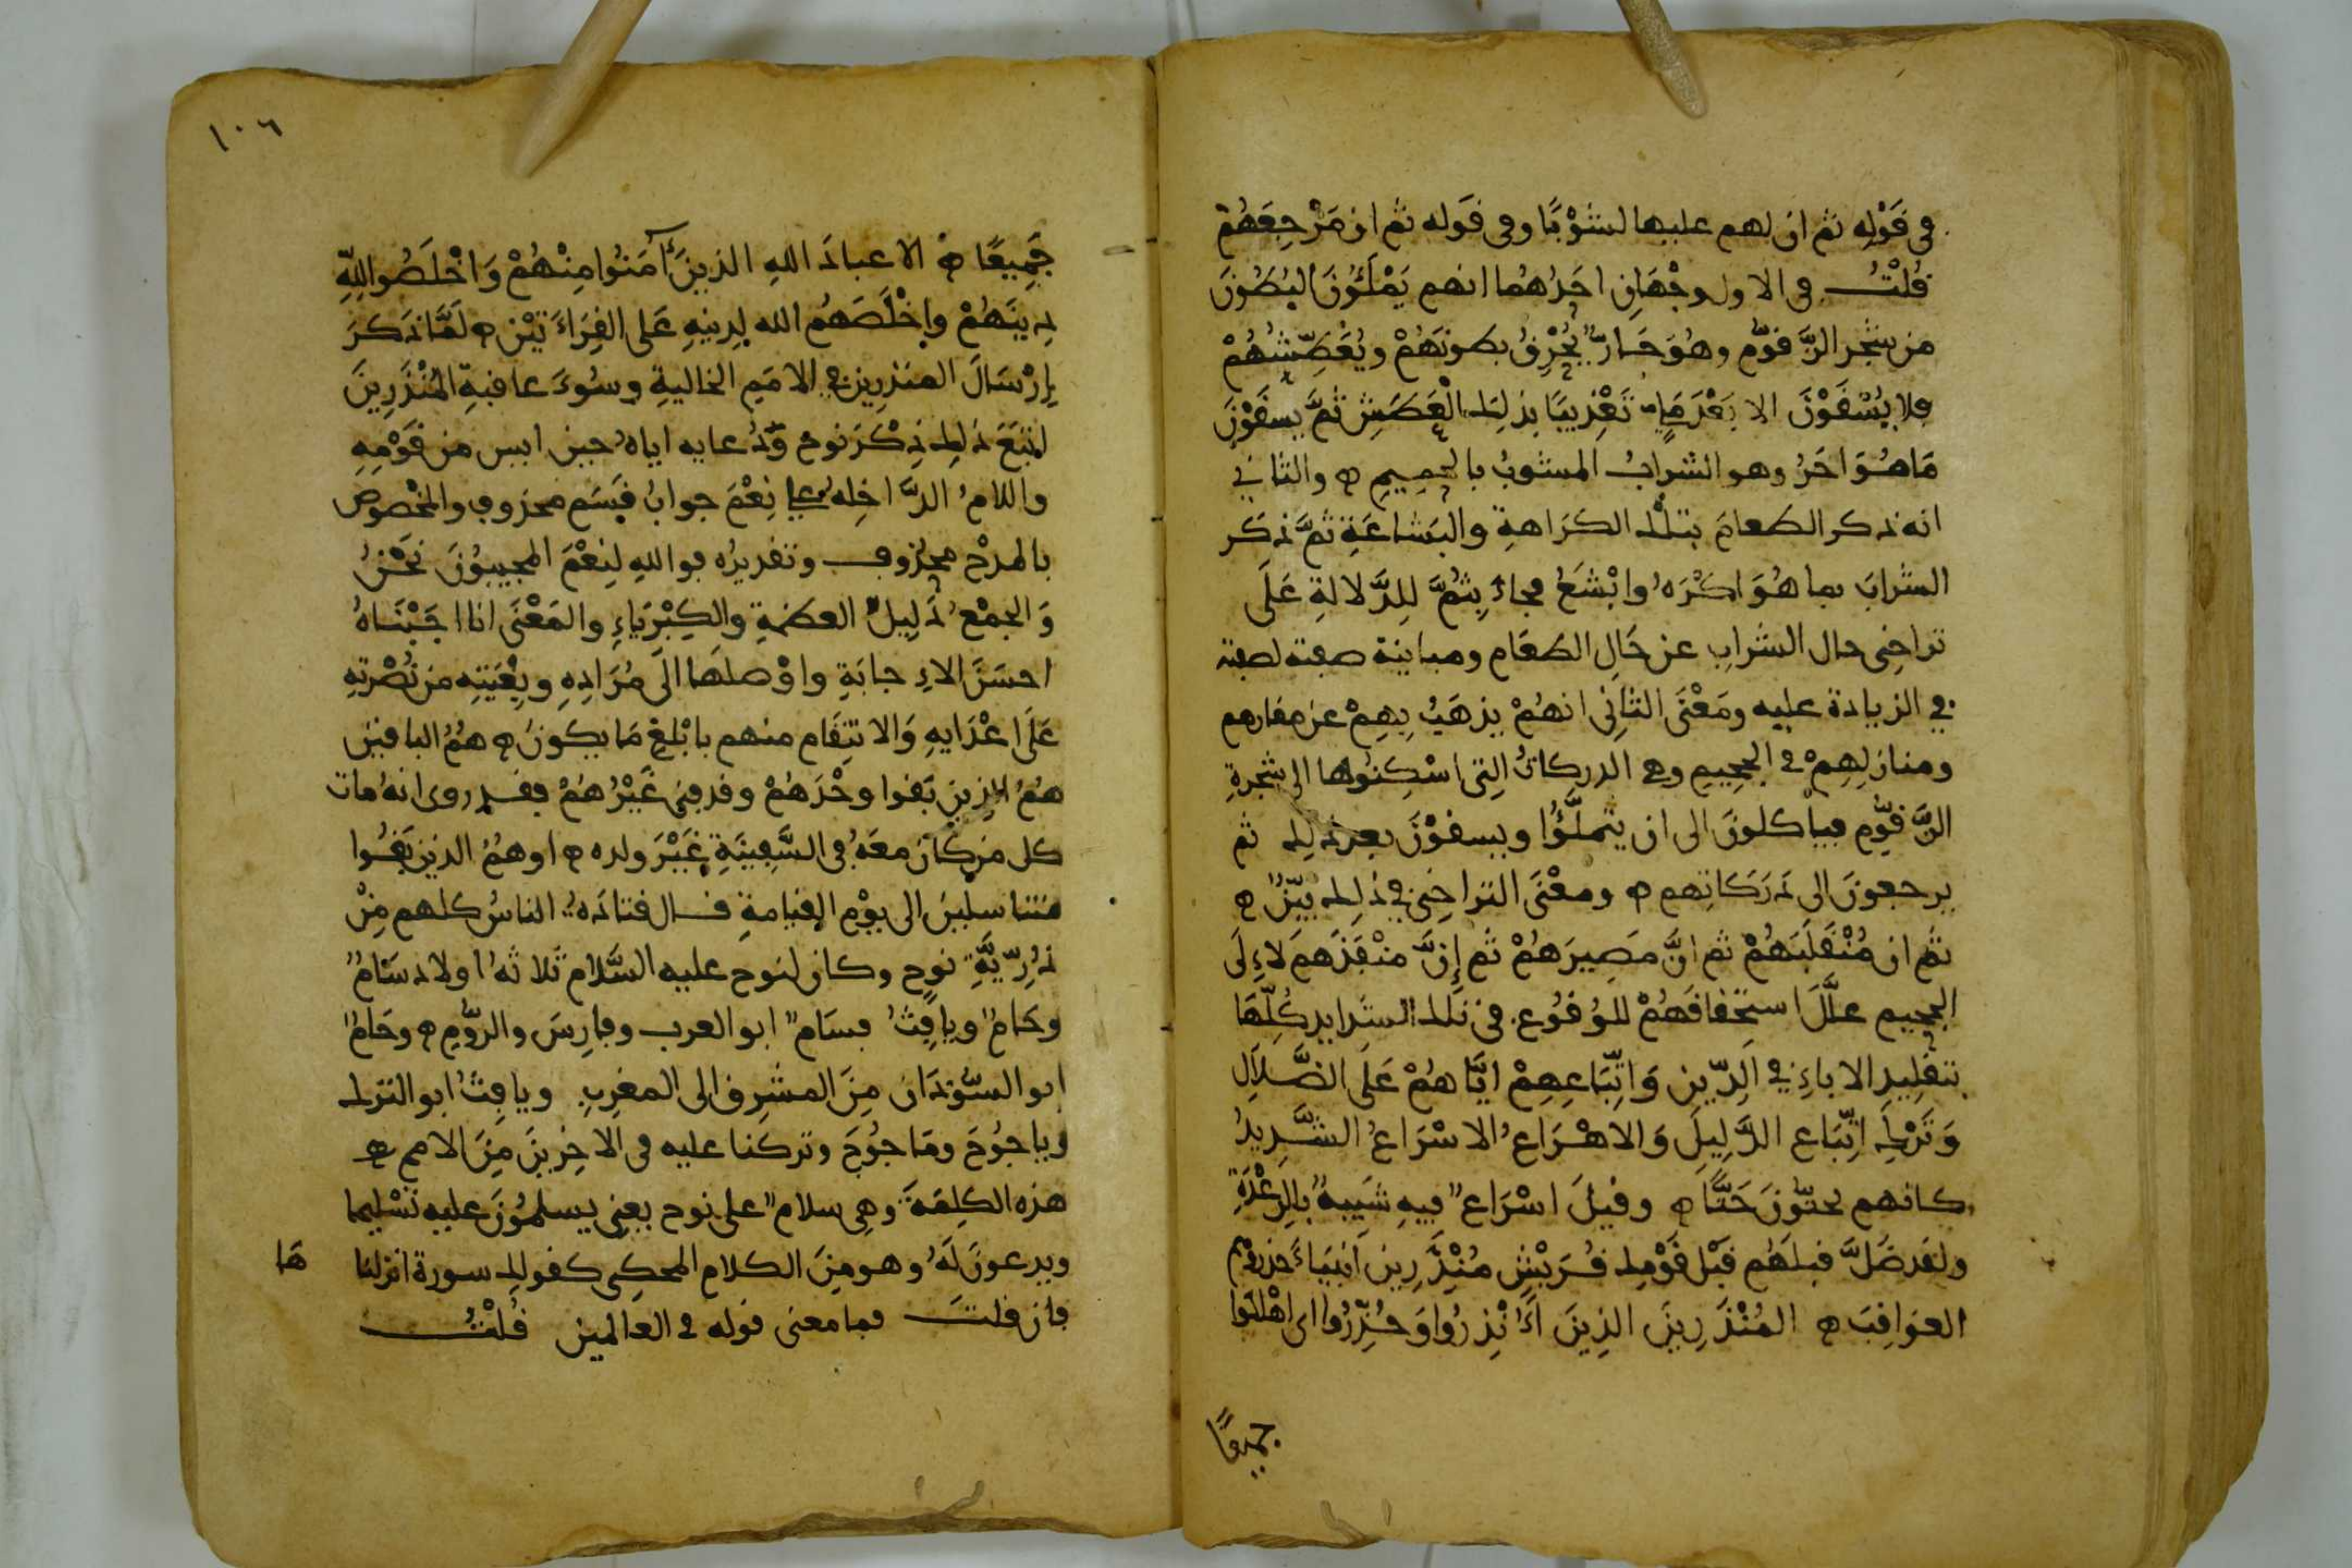 في قَوْلِهِ ثم ان لهم عليها لشَوْبًا وفي قَوله ثم ان مَرْجِعَهُمْ
قُلْتُ في الاول وجْهَانِ احَدُهُما انهم يَمْلَـُٔونَ البُطُونَ
من شجر الزَّقوّمِ وهُوَ حَارٌّ يُحْرِقُ بطونَهُمْ ويُعَطِّشُهُمْ
فلا يُسْقَوْنَ الا بَعْدَ مَلِيٍّ تَعْذِيبًا بذلِكَ العَطَشِ ثمَّ يسقَوْنَ
مَا هُوَ احَرُ وهو الشرابُ المشوبُ بالحميمِ ه والثاني
انه ذكر الطعامَ بتلْك الكرَاهةِ والبَشاعَةِ ثمَّ ذكَر
الشرابَ بما هُوَ اكْرَهُ وابْشَعُ فجاءَ بِثُمَّ لِلدَّلالةِ عَلَى
تراخِي حال الشرابِ عن حَالِ الطعَامِ ومباينة صفته لصفته
في الزيادة عليه ومَعْنَى الثانِي انهُمْ يذهَبُ بِهِمْ عن مقارهم
ومنازلِهِمْ في الجحِيمِ وهي الدركاتُ التِي اسْكِنُوها الى شجرةِ
الزَّقوّمِ فياْكلونَ الى ان يتَملَّؤُا ويسقَوْنَ بعد ذلِك ثم
يرجعونَ الى دَرَكَاتِهم ه ومعْنَى التراخِي في ذلِك بَيِّنٌ ه
ثم ان مُنْقَلَبَهُمْ ثم انَّ مَصِيرَهُمْ ثم إِنَّ منْقَذَهم لَاءِلَى
الجحيم علَّلَ استحْقاقَهُمْ للوُقُوعِ في تلك الشدايد كُلِّهَا
بتقلِيدِ الاباءِ في الدِّينِ وَاتِّبَاعِهِمْ ايَّاهُمْ عَلَى الضَّلَالِ
وَتَرْكِ اتِّبَاعِ الدَّلِيلِ وَالاهْرَاعُ الاسْرَاعُ الشَّدِيدُ
كانهم يحثّونَ حَثًّا ه وقيلَ اسْرَاعٌ فيهِ شَبِيهٌ بِالرِعْدَةِ
ولقد ضَلَّ قبلَهُم قَبْلَ قَوْمِك قُرَيْشٍ مُنْذِرِينَ أنْبِيَاءَ حذروهُم
العوَاقِبَ ه المُنْذَرِينَ الذِينَ أُنْذِرُوا وَحُذِّرُوا اى اهْلكوا
جميعًا
١٠٦
جَمِيعًا ه الا عبادَ اللهِ الذينَ آمَنُوا مِنْهُمْ وَاخْلَصُوا لِلّهِ
دِينَهُمْ واخْلَصَهُم الله لِدِينِهِ عَلى القِرَاءَتيْنِ ه لَمَّا ذكَرَ
إِرْسَالَ المنذِرِينَ في الامَمِ الخاليةِ وسُوءَ عاقبةِ المُنْذَرِينَ
اتْبَعَ ذلِك ذِكْرَ نوح وَدُعايه اياهُ حين ايس من قَوْمِهِ
واللامُ الدَّاخِلةُ على نِعْمَ جوابُ قَسَمٍ محذوفٍ والمخْصوص
بالمدْحِ محذوف وتقديرُه فواللهِ لنِعْمَ المجيبُونَ نَحْنُ
وَالجمْعُ دَلِيلُ العظمةِ والكِبْرِيَاءِ والمَعْنَى انا اجَبْنَاهُ
احسَنَ الاِجابَةِ واوْصلَهَا الَى مُرَادِهِ وبِغْيَتِهِ من نُصْرَتِهِ
عَلَى اعْدَايهِ وَالانتِقَام منهم بابْلَغِ مَا يكونُ ه هُمُ الباقين
هُمُ الذِينَ بَقوا وحْدَهُمْ وقد فنى غَيْرُهُمْ فقد روى انه مات
كل من كان معَهُ في السَّفِينَةِ غَيْرَ ولده ه او همُ الذين بَقُوا
متناسلِينَ الى يوْمِ القيامةِ قال قتادَهُ الناسُ كلهم مِنْ
ذُرِّيَّةِ نوحٍ وكان لنوح عليه السَّلام ثلاثهُ اولاد سَامٌ
وحَامٌ ويافِثُ فسَامٌ ابو العرب وفارِسَ والرُّومِ ه وحَامٌ
ابو السّودَان مِنَ المشرِقِ الى المغرِبِ ويافِثُ ابو الترك
وياجُوجَ ومَاجُوجَ وتركنا عليه في الاخِرِينَ مِنَ الامم ه
هذه الكلِمَةَ وهِي سلامٌ على نوح يعنِي يسلِمُونَ عليه تسْلِيما
ويدعونَ لَهُ وهو مِنَ الكلامِ المحكِي كقولك سورة انزلنا ها
فان قلتَ فما معنى قوله في العالمين قُلْتُ